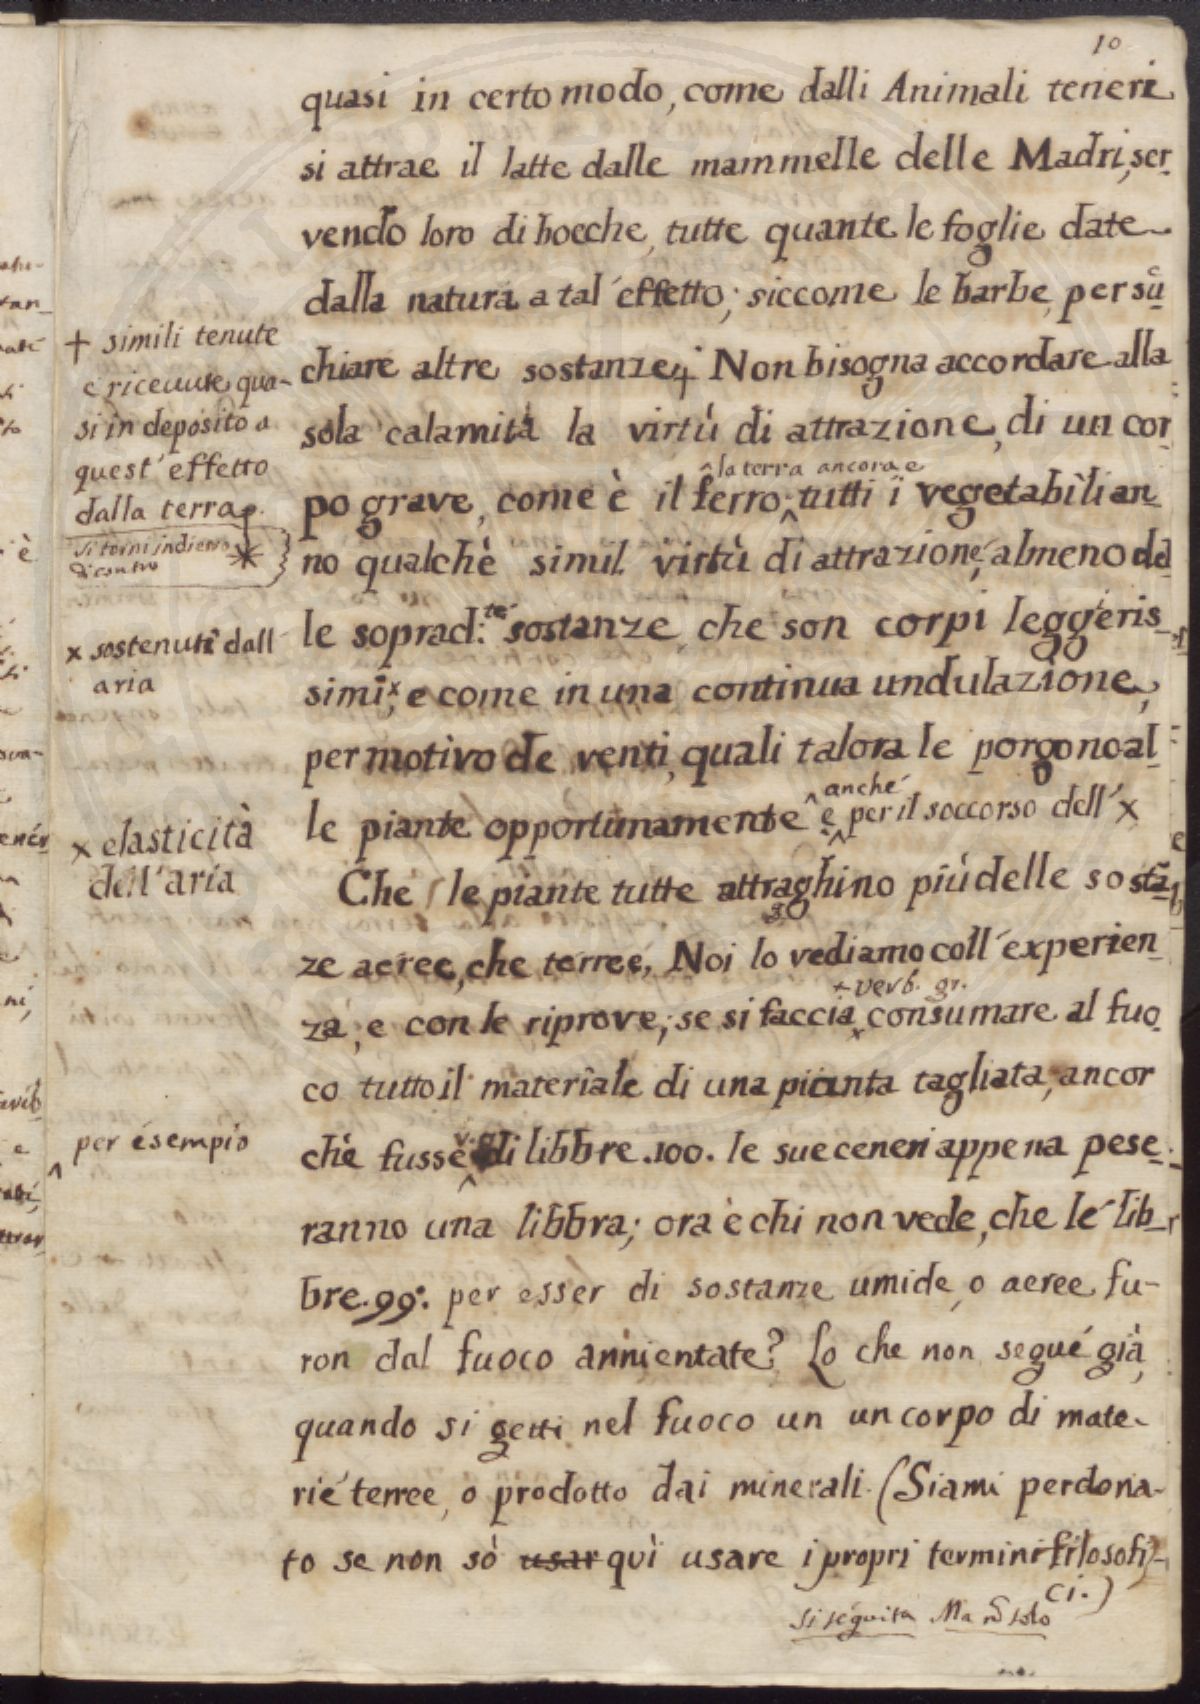 10
quasi in certo modo, come dalli Animali teneri
si attrae il latte dalle mammelle delle Madri, ser
vendo loro di bocche, tutte quante le foglie date
dalla natura a tal' effetto; siccome le barbe, per sù
chiare altre sostanze. Non bisogna accordare alla
sola calamità la virtù di attrazione, di un cor
^la terra ancora e
po grave, come è il ferro^. tutti i vegetabili an
no qualche simil virtù di attrazione, almeno del
le soprad:te sostanze, che son corpi leggeris
simi,x e come in una continua undulazione,
per motivo de venti, quali talora le porgono al
^anche
le piante opportunamente e^ per il soccorso dell' x
Che le piante tutte attraghino più delle sostã
ze aeree, che terree, Noi lo vediamo coll' experien
+ verb. gr.
za, e con le riprove; se si faccia x consumare al fuo
co tutto il materiale di una pianta tagliata, ancor
chè fusse ^ di libbre .100. le sue ceneri appena pese
ranno una libbra; ora è chi non vede, che le lib
bre .99. per esser di sostanze umide, o aeree, fu-
ron dal fuoco annientate? Lo che non segue già,
quando si getti nel fuoco un un corpo di mate-
rie terree, o prodotto dai minerali. (Siami perdona-
to se non sò usar quì usare i propri termini filosofi-
ci.)
si séguita Ma nõ solo
+ simili tenute
e ricevute qua-
si in deposito a
quest' effetto
dalla terra.
si torni indietro
di contro *
x sostenuti dall'
aria
x elasticità
dell'aria
^ per esempio